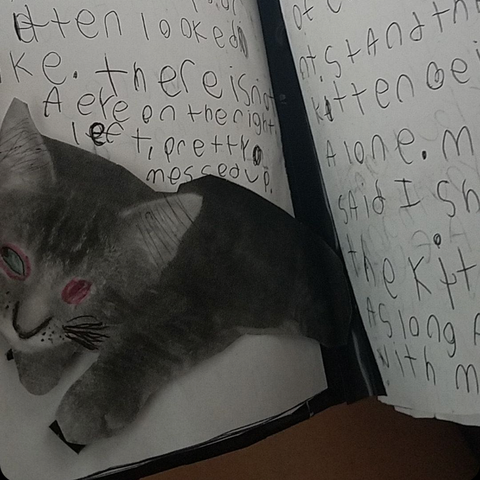 tten looked
ke. there is not
A ere on the right
left, pretty
messed up.
nt, stand th
kitten be i
Alone. m
said I sh
the kitt
As long A
with m